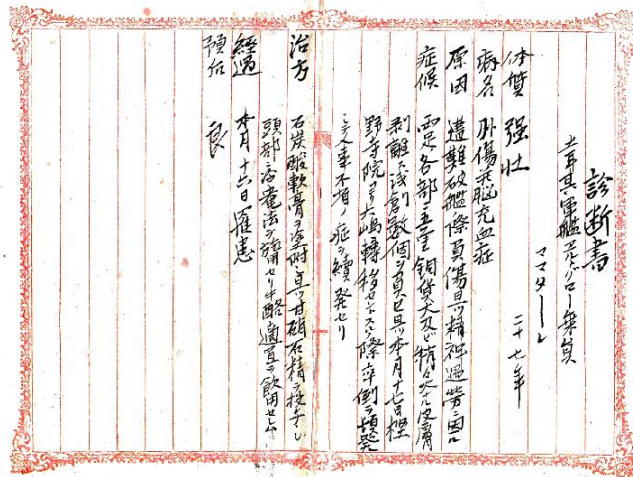 診断書
土耳其軍艦エルトグロー乗員
ママター〳〵
二十七年
体質 強壮
病名 外傷兼脳充血症
原因 遭難破艦際負傷且ツ精神過労ニ因ル
症候 両足各部ニ五厘銅貨大及ビ稍々大ナル皮膚
剥離ス浅創数個ヲ負ヘリ且ツ本月十七日樫
野寺院ヨリ大嶋轉移セントスル際卒倒ヲ頻発
シテ人事不省ノ症ヲ續発セリ
治方 石炭酸軟膏ヲ塗附シ且ツ甘硝石精ヲ投与シ
頭部ニ冷罨法ヲ施セリ牛酪適宜ヲ飲用セシム
経過 本月十六日罹患
預后 良